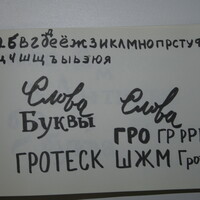 бвгдеёжзиклмнопрстуф
цчшщъыьэюя
Слова Слова
Буквы ГРО ГР
ГРОТЕСК ШЖМ Гро